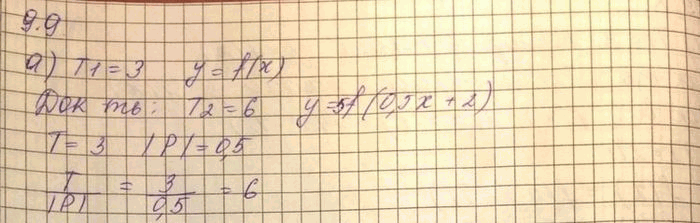 9.9
а) T1 = 3 y = f(x)
Док ть: T2 = 6 y = 5f(0,5x + 2)
T = 3 |P| = 0,5
T/|P| = 3/0,5 = 6